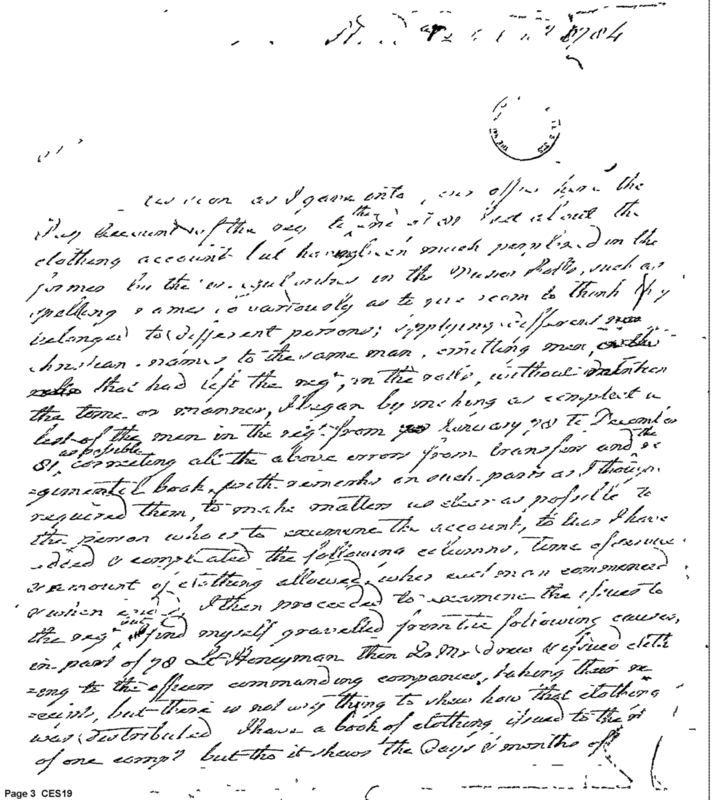 1784
as soon as I gave into your office here the
Pay Account of the reg to the end of 81 I set about the
clothing account but having been much perplexed in the
former by the irregularities in the Muster Rolls, such as
spelling names so variously as to give room to think they
belonged to different persons; applying different
christian names to the same man, omitting men,
that had left the regt, in the rolls, without mention
the time or manner, I began by making as compleat a
list of the men in the regt from January 78 to December
as possible
81, correcting all the above errors from transfers and the re
=gimental book, with remarks on such parts as I thought
required them, to make matters as clear as possible to
the person who is to examine the account, to this I have
added & compleated the following columns, time of service
& amount of clothing allowed, when each man commenced
& when ends, I then proceeded to examine the issues to
the regt but find myself gravelled from the following causes,
in part of 78 Lt Honeyman then Qr Mr drew & issued cloth
=ing to the officers commanding companies, taking their re
=ceipts, but there is not any thing to shew how that clothing
was distributed I have a book of clothing issued to the
of one compy but tho it shews the Days & months of
Page 3 CES19